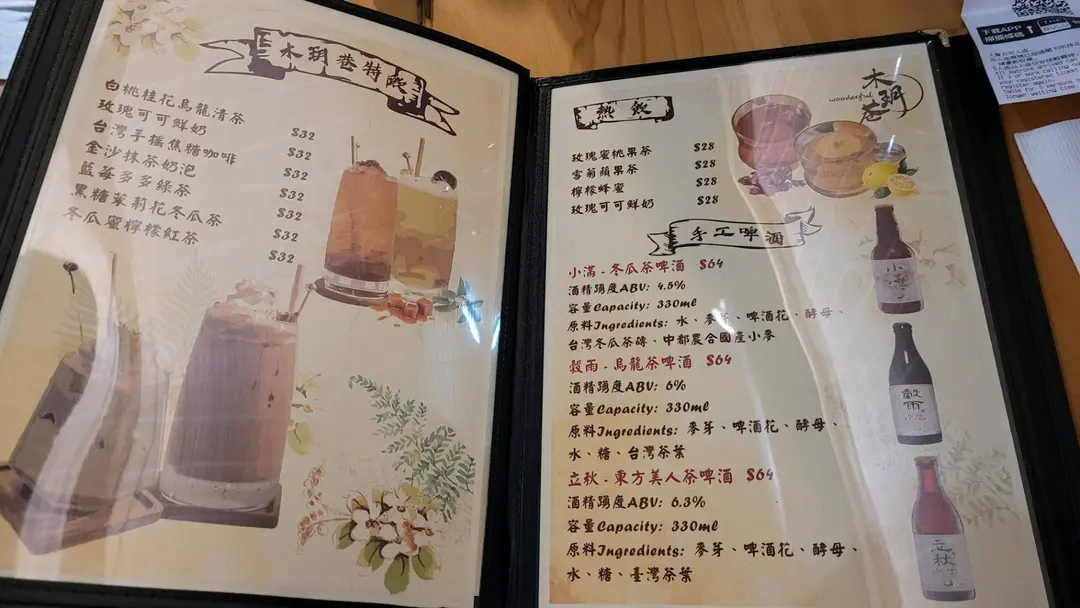 木玥巷特飲
白桃桂花烏龍清茶 $32
玫瑰可可鮮奶 $32
台灣手搖焦糖咖啡 $32
金沙抹茶奶泡 $32
藍莓多多綠茶 $32
黑糖茉莉花冬瓜茶 $32
冬瓜蜜檸檬紅茶 $32
木玥巷
wonderful
熱飲
玫瑰蜜桃果茶 $28
雪菊蘋果茶 $28
檸檬蜂蜜 $28
玫瑰可可鮮奶 $28
手工啤酒
小滿 - 冬瓜茶啤酒 $64
酒精踴度ABV: 4.5%
容量Capacity: 330ml
原料Ingredients: 水、麥芽、啤酒花、酵母、
台灣冬瓜茶磚、中都農合國產小麥
穀雨 - 烏龍茶啤酒 $64
酒精踴度ABV: 6%
容量Capacity: 330ml
原料Ingredients: 麥芽、啤酒花、酵母、
水、糖、台灣茶葉
立秋 - 東方美人茶啤酒 $64
酒精踴度ABV: 6.3%
容量Capacity: 330ml
原料Ingredients: 麥芽、啤酒花、酵母、
水、糖、臺灣茶葉
小滿
穀雨
立秋
下載APP